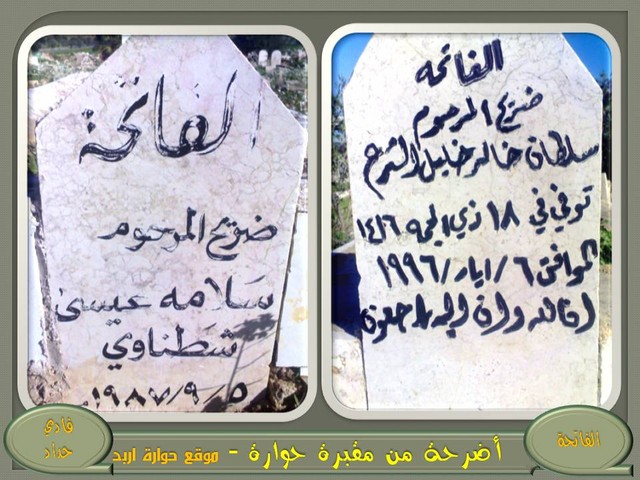 الفاتحة
ضريح المرحوم
سلطان خالد خليل الشرع
توفي في ١٨ ذي الحجه ١٤١٦
الموافق ٦ / ايار / ١٩٩٦
انا لله وانا اليه راجعون
الفاتحة
ضريح المرحوم
سَلامه عيسى
شطناوي
١٩٨٧/٩/٥
الفاتحة
أضرحة من مقبرة حوارة - موقع حوارة اربد
فادي
حداد